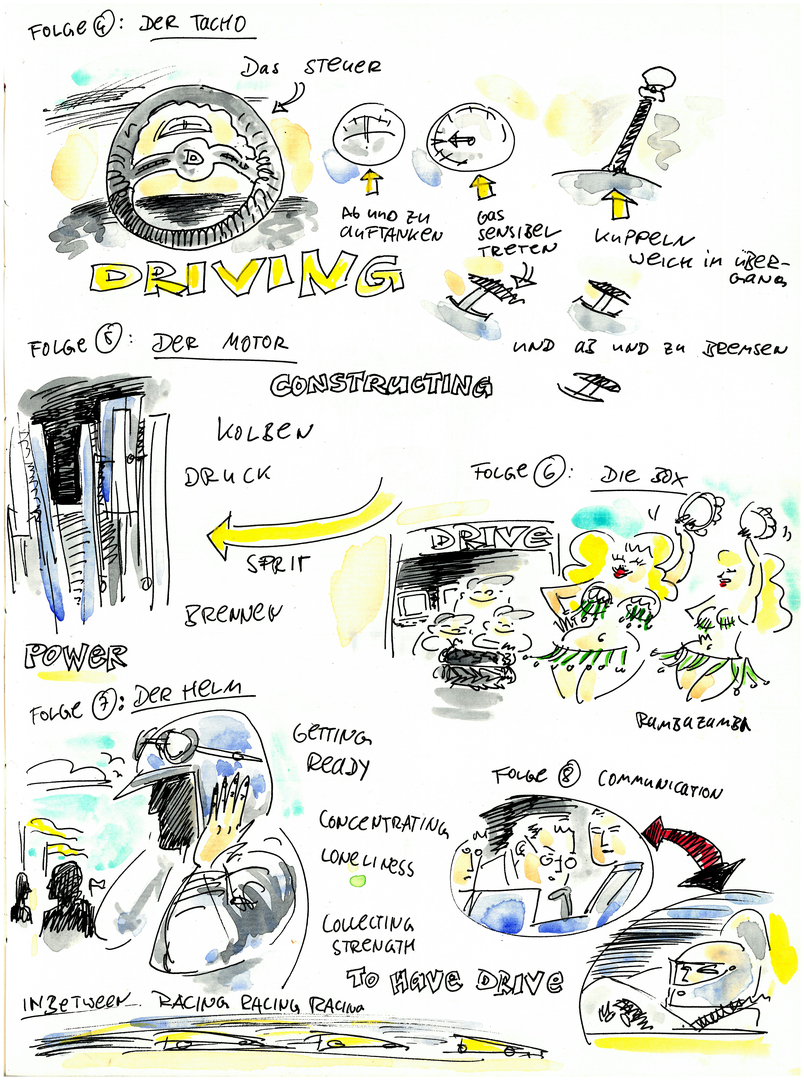 FOLGE ④: DER TACHO
Das STEUER
AB UND ZU
AUFTANKEN
GAS
SENSIBEL
TRETEN
KUPPELN
WEICH IM ÜBER-
GANG
DRIVING
UND AB UND ZU BREMSEN
FOLGE ⑤: DER MOTOR
CONSTRUCTING
KOLBEN
DRUCK
SPRIT
BRENNEN
POWER
FOLGE ⑥: DIE BOX
DRIVE
RAMBAZAMBA
FOLGE ⑦: DER HELM
GETTING
READY
CONCENTRATING
LONELINESS
COLLECTING
STRENGTH
FOLGE ⑧ COMMUNICATION
TO HAVE DRIVE
INBETWEEN. RACING RACING RACING